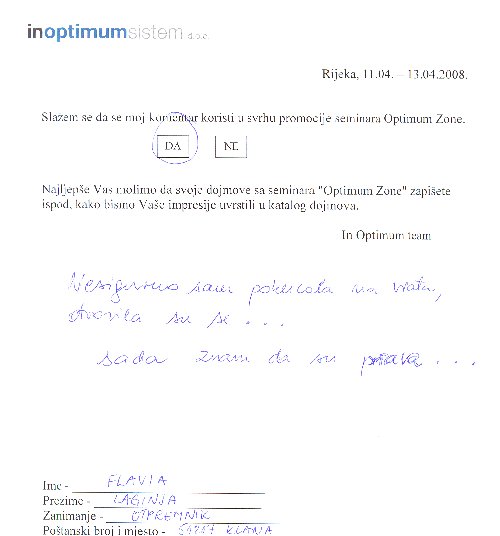 inoptimumsistem d.o.o.
Rijeka, 11.04. – 13.04.2008.
Slazem se da se moj komentar koristi u svrhu promocije seminara Optimum Zone.
DA NE
Najljepše Vas molimo da svoje dojmove sa seminara "Optimum Zone" zapišete
ispod, kako bismo Vaše impresije uvrstili u katalog dojmova.
In Optimum team
Nesigurno sam pokucala na vrata,
otvorila su se ...
sada znam da su prava ...
Ime - FLAVIA
Prezime - LAGINJA
Zanimanje - OTPREMNIK
Poštanski broj i mjesto - 51217 KLANA